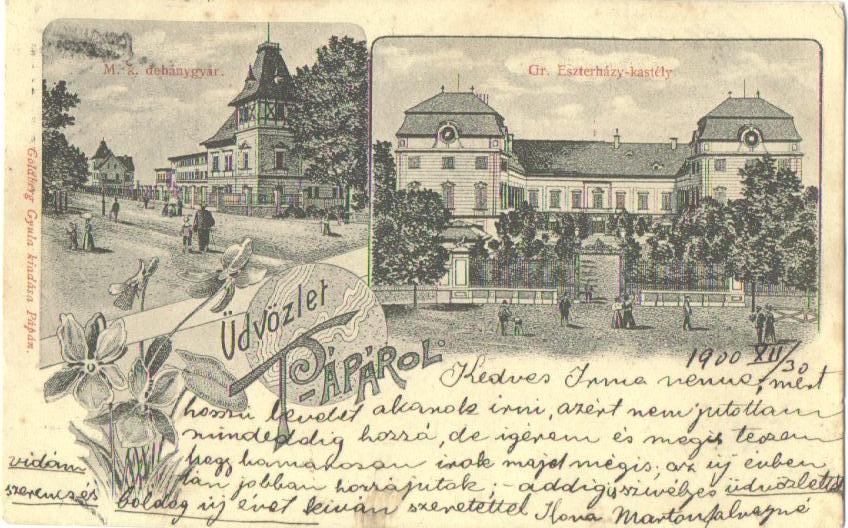 M. k. dohánygyár.
Gr. Eszterházy-kastély
Goldberg Gyula kiadása Pápán.
Üdvözlet
PÁPÁROL
1900 XII/30
Kedves Irma nénus, mért
hosszu levelet akarok irni, azért nem jutottam
mindeddig hozzá, de igérem és mégis teszem
hogy hamarosan irok majd mégis, az új évben
tán jobban hozzájutok; - addig szivélyes üdvözlettel
vidám
szerencsés boldog új évet kiván szeretettel Ilona Mártonfalvayné